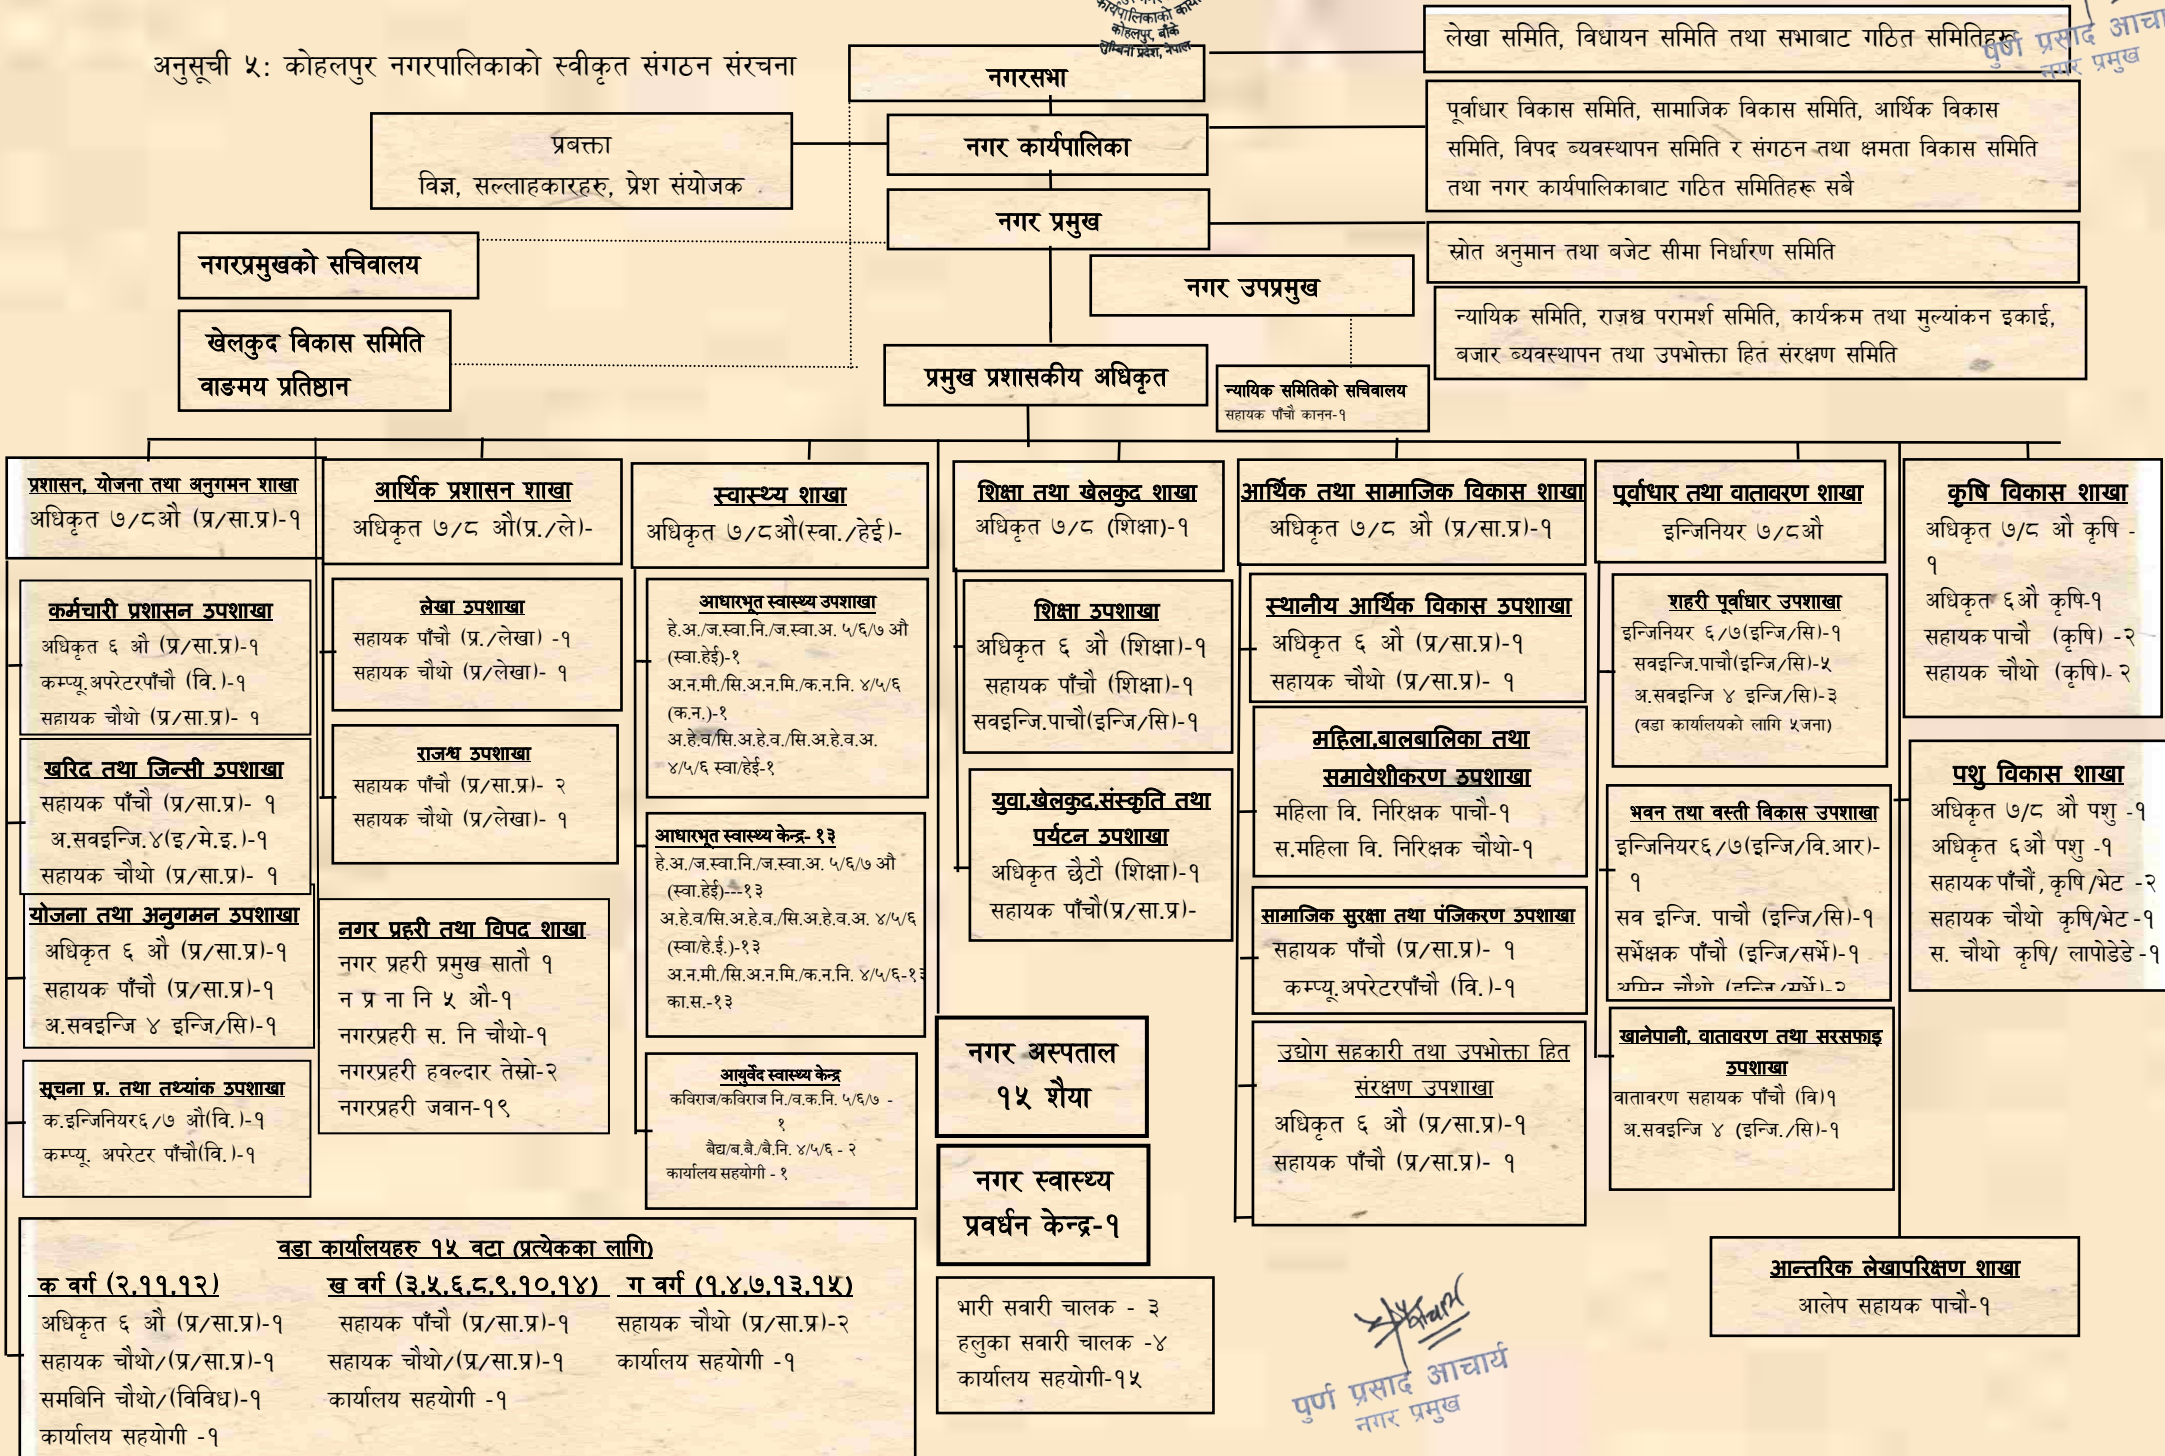 कार्यपालिकाको
कोहलपुर, बाँके
लुम्बिनी प्रदेश, नेपाल
अनुसूची ५: कोहलपुर नगरपालिकाको स्वीकृत संगठन संरचना
नगरसभा
लेखा समिति, विधायन समिति तथा सभाबाट गठित समितिहरू
पुर्ण प्रसाद
नगर प्रमुख
प्रबक्ता
विज्ञ, सल्लाहकारहरु, प्रेश संयोजक
नगर कार्यपालिका
पूर्वाधार विकास समिति, सामाजिक विकास समिति, आर्थिक विकास
समिति, विपद ब्यवस्थापन समिति र संगठन तथा क्षमता विकास समिति
तथा नगर कार्यपालिकाबाट गठित समितिहरू सबै
नगर प्रमुख
स्रोत अनुमान तथा बजेट सीमा निर्धारण समिति
नगरप्रमुखको सचिवालय
नगर उपप्रमुख
न्यायिक समिति, राजश्व परामर्श समिति, कार्यक्रम तथा मुल्यांकन इकाई,
बजार ब्यवस्थापन तथा उपभोक्ता हित संरक्षण समिति
खेलकुद विकास समिति
वाङमय प्रतिष्ठान
प्रमुख प्रशासकीय अधिकृत
न्यायिक समितिको सचिवालय
सहायक पाँचौ कानन-१
प्रशासन, योजना तथा अनुगमन शाखा
अधिकृत ७/८औ (प्र/सा.प्र)-१
कर्मचारी प्रशासन उपशाखा
अधिकृत ६ औ (प्र/सा.प्र)-१
कम्प्यू.अपरेटरपाँचौ (वि.)-१
सहायक चौथो (प्र/सा.प्र)- १
खरिद तथा जिन्सी उपशाखा
सहायक पाँचौ (प्र/सा.प्र)- १
अ.सवइन्जि.४(इ/मे.इ.)-१
सहायक चौथो (प्र/सा.प्र)- १
योजना तथा अनुगमन उपशाखा
अधिकृत ६ औ (प्र/सा.प्र)-१
सहायक पाँचौ (प्र/सा.प्र)-१
अ.सवइन्जि ४ इन्जि/सि)-१
सूचना प्र. तथा तथ्यांक उपशाखा
क.इन्जिनियर६/७ औ(वि.)-१
कम्प्यू. अपरेटर पाँचौ(वि.)-१
आर्थिक प्रशासन शाखा
अधिकृत ७/८ औ(प्र./ले)-
लेखा उपशाखा
सहायक पाँचौ (प्र./लेखा) -१
सहायक चौथो (प्र/लेखा)- १
राजश्व उपशाखा
सहायक पाँचौ (प्र/सा.प्र)- २
सहायक चौथो (प्र/लेखा)- १
नगर प्रहरी तथा विपद शाखा
नगर प्रहरी प्रमुख सातौ १
न प्र ना नि ५ औ-१
नगरप्रहरी स. नि चौथो-१
नगरप्रहरी हवल्दार तेस्रो-२
नगरप्रहरी जवान-१९
स्वास्थ्य शाखा
अधिकृत ७/८औ(स्वा./हेई)-
आधारभूत स्वास्थ्य उपशाखा
हे.अ./ज.स्वा.नि./ज.स्वा.अ. ५/६/७ औ
(स्वा.हेई)-१
अ.न.मी./सि.अ.न.मि./क.न.नि. ४/५/६
(क.न.)-१
अ.हे.व/सि.अ.हे.व./सि.अ.हे.व.अ.
४/५/६ स्वा/हेई-१
आधारभूत स्वास्थ्य केन्द्र- १३
हे.अ./ज.स्वा.नि./ज.स्वा.अ. ५/६/७ औ
(स्वा.हेई)---१३
अ.हे.व/सि.अ.हे.व./सि.अ.हे.व.अ. ४/५/६
(स्वा/हे.ई.)-१३
अ.न.मी./सि.अ.न.मि./क.न.नि. ४/५/६-१३
का.स.-१३
आयुर्वेद स्वास्थ्य केन्द्र
कविराज/कविराज नि./व.क.नि. ५/६/७ -
१
बैद्य/ब.बै./बै.नि. ४/५/६ - २
कार्यालय सहयोगी - १
शिक्षा तथा खेलकुद शाखा
अधिकृत ७/८ (शिक्षा)-१
शिक्षा उपशाखा
अधिकृत ६ औ (शिक्षा)-१
सहायक पाँचौ (शिक्षा)-१
सवइन्जि.पाचौ(इन्जि/सि)-१
युवा,खेलकुद,संस्कृति तथा
पर्यटन उपशाखा
अधिकृत छैटौ (शिक्षा)-१
सहायक पाँचौ(प्र/सा.प्र)-
नगर अस्पताल
१५ शैया
नगर स्वास्थ्य
प्रवर्धन केन्द्र-१
भारी सवारी चालक - ३
हलुका सवारी चालक -४
कार्यालय सहयोगी-१५
आर्थिक तथा सामाजिक विकास शाखा
अधिकृत ७/८ औ (प्र/सा.प्र)-१
स्थानीय आर्थिक विकास उपशाखा
अधिकृत ६ औ (प्र/सा.प्र)-१
सहायक चौथो (प्र/सा.प्र)- १
महिला,बालबालिका तथा
समावेशीकरण उपशाखा
महिला वि. निरिक्षक पाचौ-१
स.महिला वि. निरिक्षक चौथो-१
सामाजिक सुरक्षा तथा पंजिकरण उपशाखा
सहायक पाँचौ (प्र/सा.प्र)- १
कम्प्यू.अपरेटरपाँचौ (वि.)-१
उद्योग सहकारी तथा उपभोक्ता हित
संरक्षण उपशाखा
अधिकृत ६ औ (प्र/सा.प्र)-१
सहायक पाँचौ (प्र/सा.प्र)- १
पूर्वाधार तथा वातावरण शाखा
इन्जिनियर ७/८औ
शहरी पूर्वाधार उपशाखा
इन्जिनियर ६/७(इन्जि/सि)-१
सवइन्जि.पाचौ(इन्जि/सि)-५
अ.सवइन्जि ४ इन्जि/सि)-३
(वडा कार्यालयको लागि ५जना)
भवन तथा वस्ती विकास उपशाखा
इन्जिनियर६/७(इन्जि/वि.आर)-
१
सव इन्जि. पाचौ (इन्जि/सि)-१
सर्भेक्षक पाँचौ (इन्जि/सर्भे)-१
अमिन चौथो (इन्जि/सर्भे)-२
खानेपानी, वातावरण तथा सरसफाइ
उपशाखा
वातावरण सहायक पाँचौ (वि)१
अ.सवइन्जि ४ (इन्जि./सि)-१
कृषि विकास शाखा
अधिकृत ७/८ औ कृषि -
१
अधिकृत ६औ कृषि-१
सहायक पाचौ (कृषि) -२
सहायक चौथो (कृषि)- २
पशु विकास शाखा
अधिकृत ७/८ औ पशु -१
अधिकृत ६औ पशु -१
सहायक पाँचौं, कृषि /भेट -२
सहायक चौथो कृषि/भेट -१
स. चौथो कृषि/ लापोडेडे -१
आन्तरिक लेखापरिक्षण शाखा
आलेप सहायक पाचौ-१
वडा कार्यालयहरु १५ वटा (प्रत्येकका लागि)
क वर्ग (२,११,१२)
अधिकृत ६ औ (प्र/सा.प्र)-१
सहायक चौथो/(प्र/सा.प्र)-१
समबिनि चौथो/(विविध)-१
कार्यालय सहयोगी -१
ख वर्ग (३,५,६,८,९,१०,१४)
सहायक पाँचौ (प्र/सा.प्र)-१
सहायक चौथो/(प्र/सा.प्र)-१
कार्यालय सहयोगी -१
ग वर्ग (१,४,७,१३,१५)
सहायक चौथो (प्र/सा.प्र)-२
कार्यालय सहयोगी -१
पुर्ण प्रसाद आचार्य
नगर प्रमुख